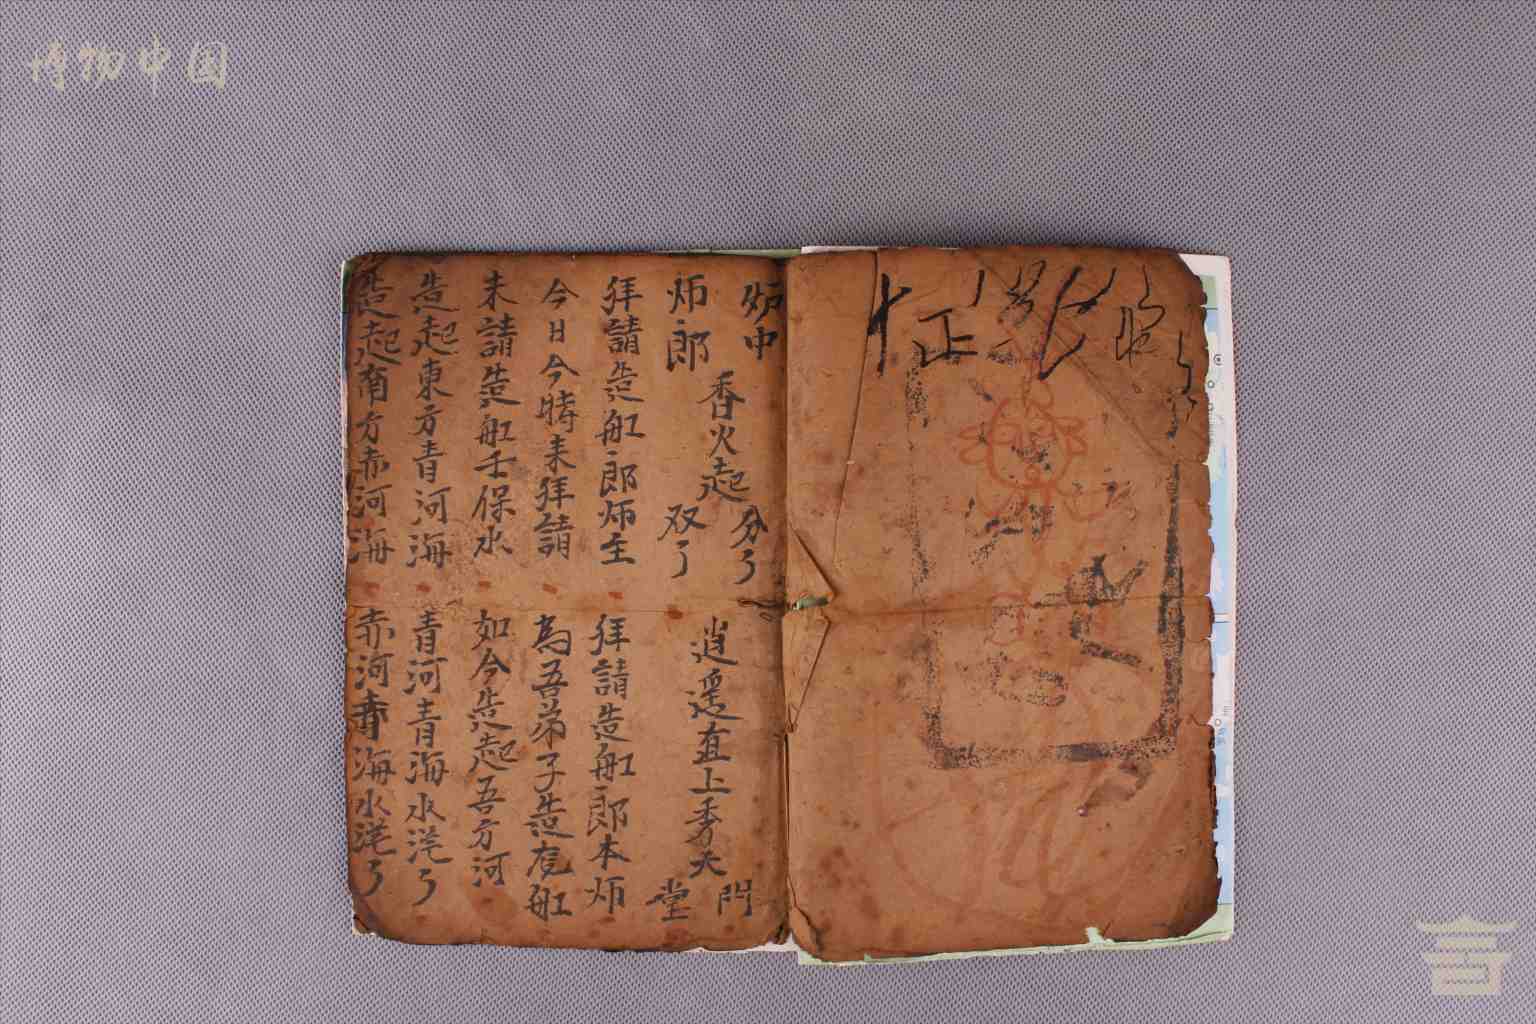 博物中国
正
炉中 香火起 分了 逍遥直上香天 門
师郎 双了 堂
拜請造舡郎师主 拜請造舡郎本师
今日今時来拜請 為吾弟子造竜舡
来請造舡壬保水 如今造起吾方河
造起東方青河海 青河青海水茫了
造起南方赤河海 赤河青海水茫了